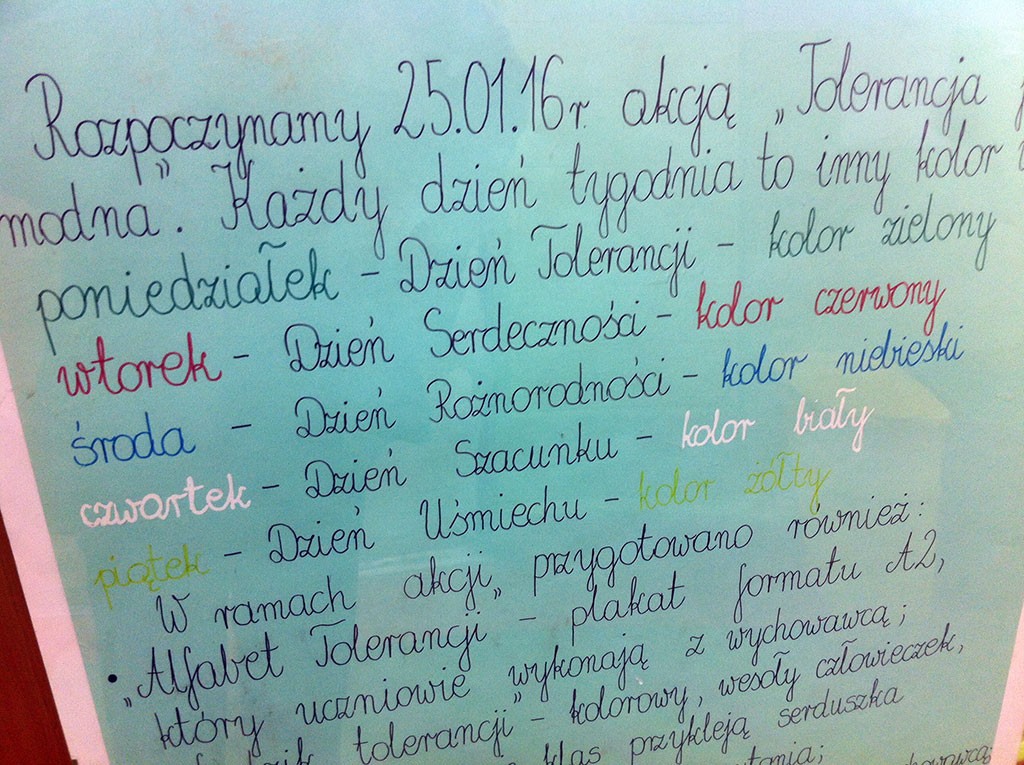 Rozpoczynamy 25.01.16r. akcją „Tolerancja
modna”. Każdy dzień tygodnia to inny kolor
poniedziałek – Dzień Tolerancji – kolor zielony
wtorek – Dzień Serdeczności – kolor czerwony
środa – Dzień Rożnorodności – kolor niebieski
czwartek – Dzień Szacunku – kolor biały
piątek – Dzień Uśmiechu – kolor żółty
W ramach akcji, przygotowano również:
• „Alfabet Tolerancji – plakat formatu A2,
który uczniowie wykonają z wychowawcą;
tolerancji” – kolorowy, wesoły człowieczek,
klas przykleją serduszka